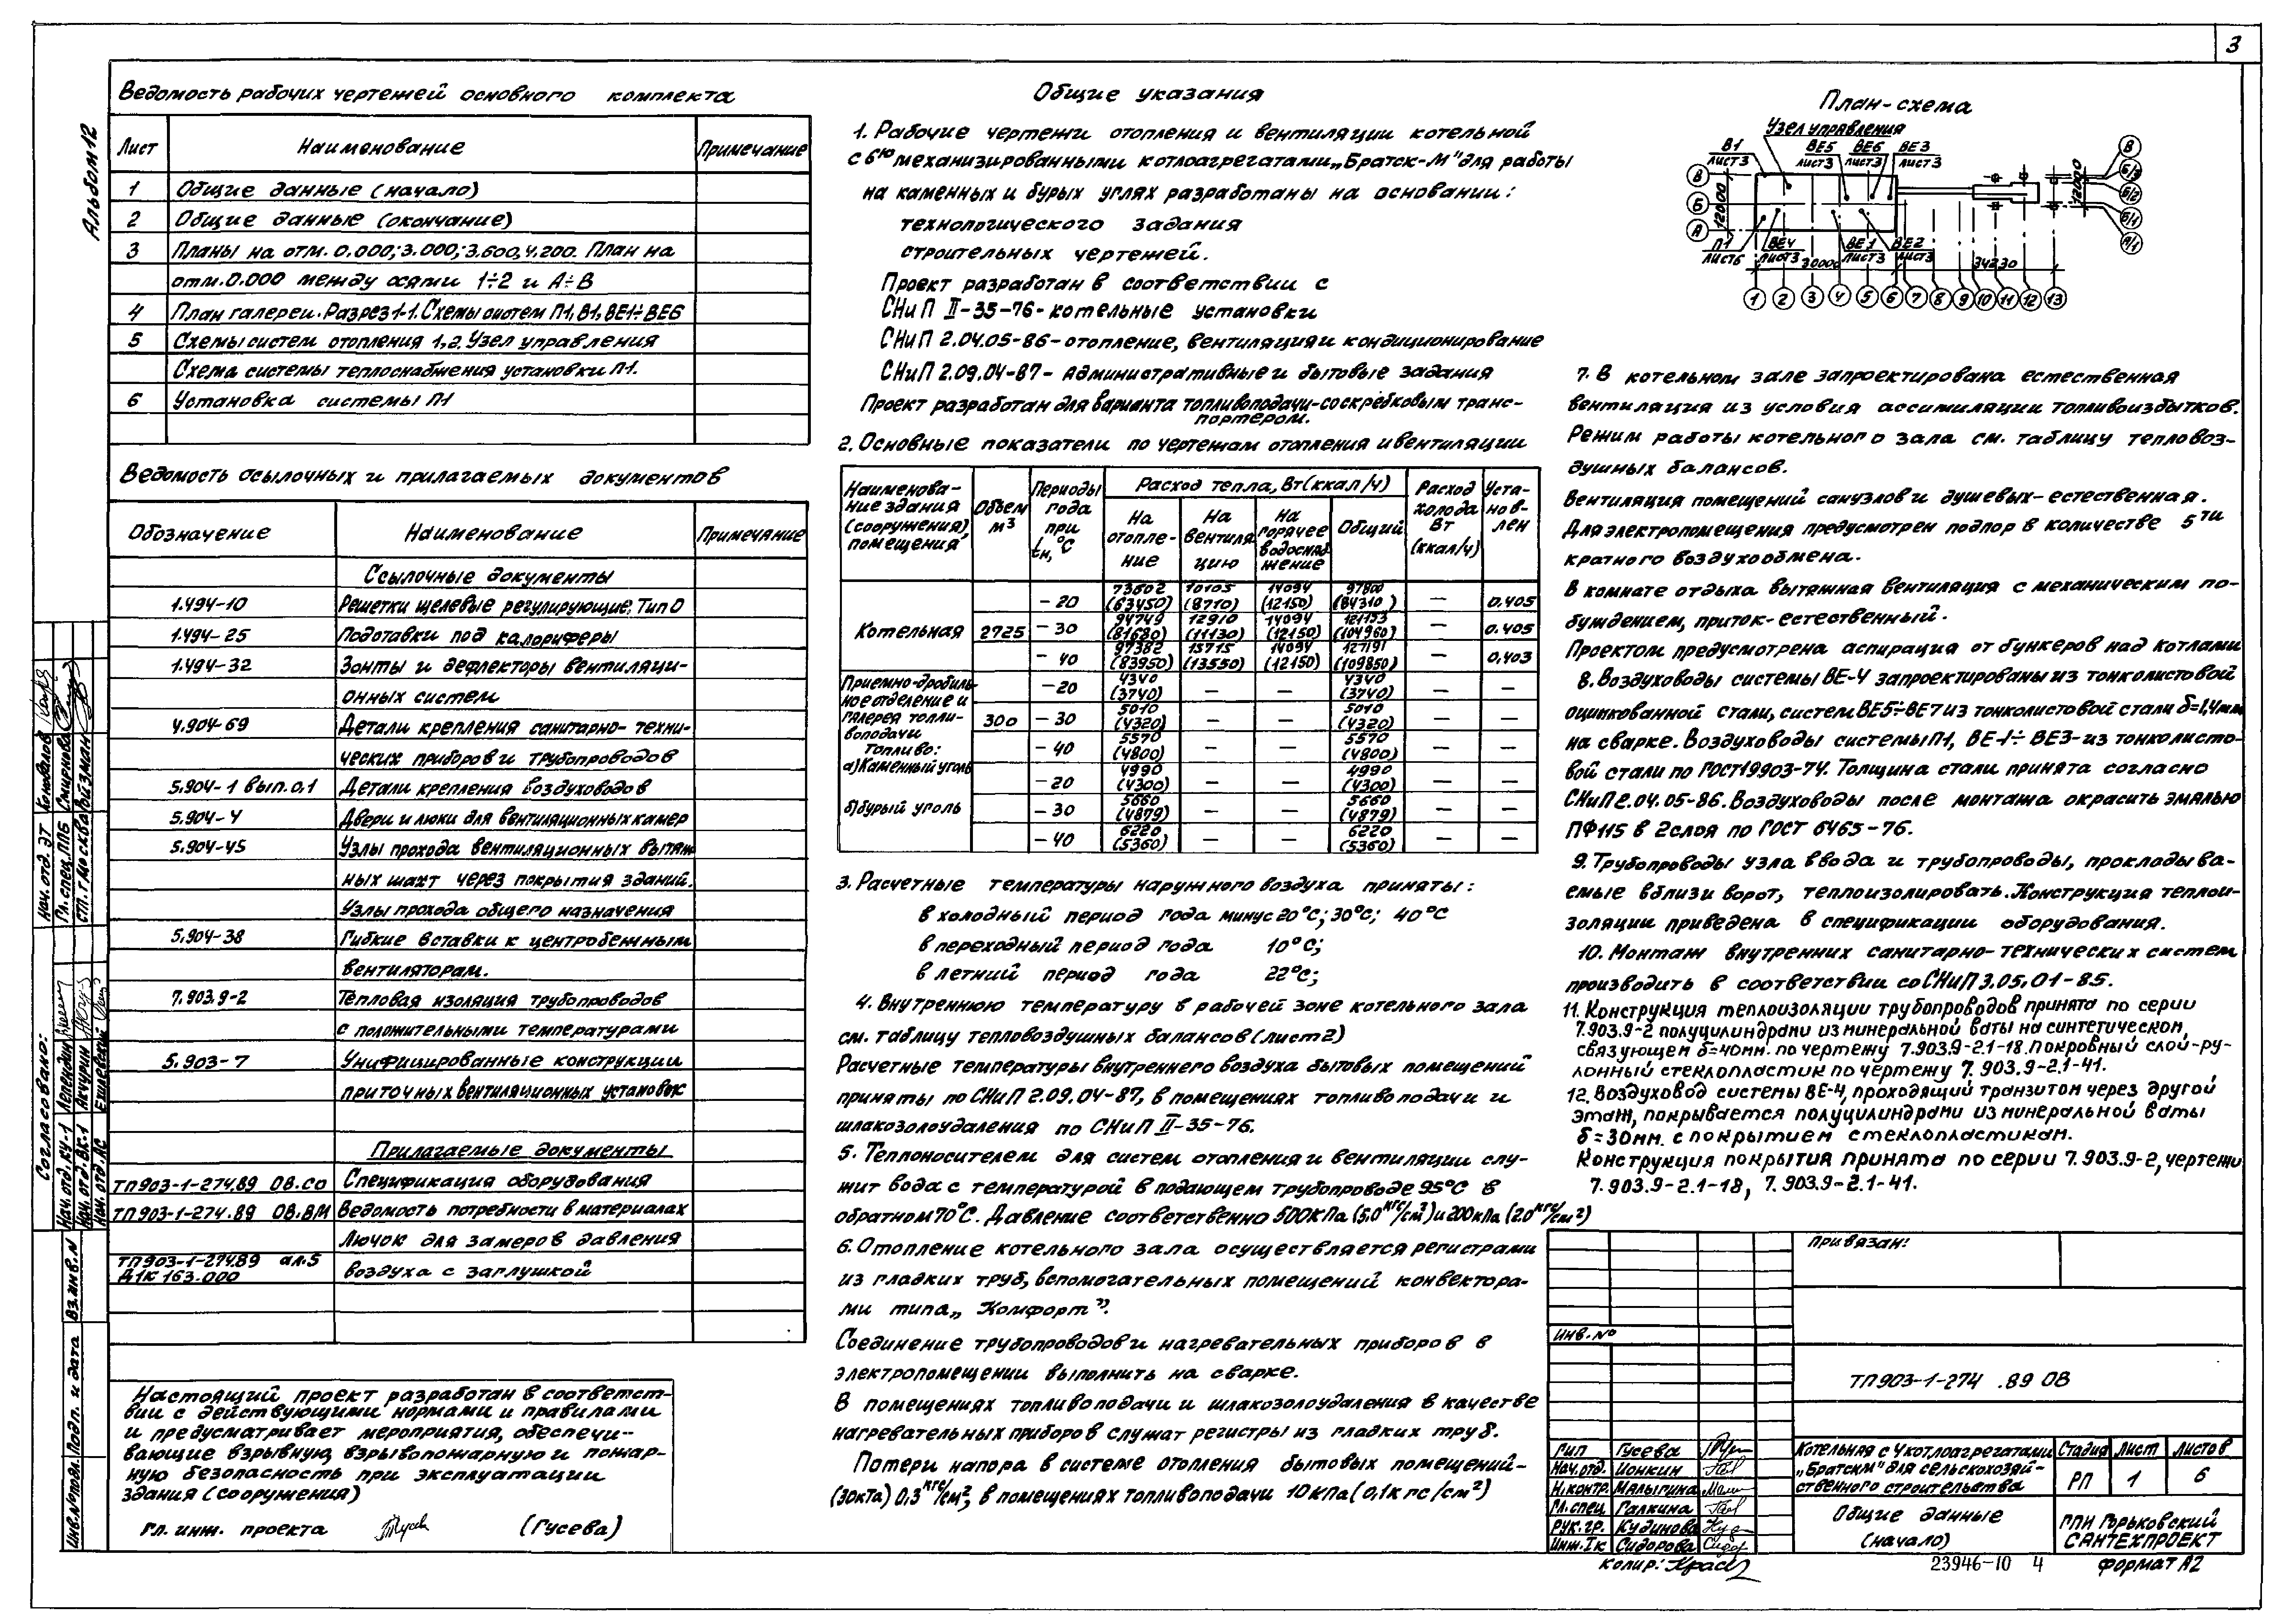 3
Альбом 12
Ведомость рабочих чертежей основного комплекта
Лист Наименование Примечание
1 Общие данные (начало)
2 Общие данные (окончание)
3 Планы на отм. 0.000; 3.000; 3.600, 4.200. План на
отм. 0.000 между осями 1÷2 и А÷В
4 План галереи. Разрез 1-1. Схемы систем П1, В1, ВЕ1÷ВЕ6
5 Схемы систем отопления 1,2. Узел управления
Схема системы теплоснабжения установки П1.
6 Установка системы П1
Ведомость ссылочных и прилагаемых документов
Обозначение Наименование Примечание
Ссылочные документы
1.494-10 Решетки щелевые регулирующие, Тип О
1.494-25 Подставки под калориферы
1.494-32 Зонты и дефлекторы вентиляци-
онных систем
4.904-69 Детали крепления санитарно-техни-
ческих приборов и трубопроводов
5.904-1 вып. 0,1 Детали крепления воздуховодов
5.904-4 Двери и люки для вентиляционных камер
5.904-45 Узлы прохода вентиляционных вытяж
ных шахт через покрытия зданий.
Узлы прохода общего назначения
5.904-38 Гибкие вставки к центробежным
вентиляторам.
7.903.9-2 Тепловая изоляция трубопроводов
с положительными температурами
5.903-7 Унифицированные конструкции
приточных вентиляционных установок
Прилагаемые документы
ТП903-1-274.89 ОВ.СО Спецификация оборудования
ТП903-1-274.89 ОВ.ВМ Ведомость потребности в материалах
Лючок для замеров давления
ТП903-1-274.89 ал.5
Д1К 163.000 воздуха с заглушкой
Настоящий проект разработан в соответст-
вии с действующими нормами и правилами
и предусматривает мероприятия, обеспечи-
вающие взрывную, взрывопожарную и пожар-
ную безопасность при эксплуатации
здания (сооружения)
Гл. инж. проекта (Гусева)
Общие указания
1. Рабочие чертежи отопления и вентиляции котельной
с 6ю механизированными котлоагрегатами „Братск-М" для работы
на каменных и бурых углях разработаны на основании:
технологического задания
строительных чертежей.
Проект разработан в соответствии с
СНиП II-35-76 - котельные установки
СНиП 2.04.05-86 - отопление, вентиляция и кондиционирование
СНиП 2.09.04-87 - административные и бытовые здания
Проект разработан для варианта топливоподачи - со скребковым транс-
портером.
2. Основные показатели по чертежам отопления и вентиляции
Наименова-
ние здания
(сооружения),
помещения Объем
м³ Периоды
года
при
tн, °С Расход тепла, Вт (ккал/ч) Расход
холода
Вт
(ккал/ч) Уста-
нов-
лен
На
отопле-
ние На
вентиля
цию На
горячее
водоснаб
жение Общий
Котельная 2725
-20 73602 (63450) 10105 (8710) 14094 (12150) 97800 (84310) — 0.405
-30 94749 (81680) 12910 (11130) 14094 (12150) 121753 (104960) — 0.405
-40 97382 (83950) 15715 (13550) 14094 (12150) 127191 (109850) — 0,403
Приемно-дробиль-
ное отделение и
галерея топли-
воподачи
Топливо:
а) Каменный уголь 300
-20 4340 (3740) — — 4340 (3740) — —
-30 5010 (4320) — — 5010 (4320) — —
-40 5570 (4800) — — 5570 (4800) — —
б) бурый уголь
-20 4990 (4300) — — 4990 (4300) — —
-30 5660 (4879) — — 5660 (4879) — —
-40 6220 (5360) — — 6220 (5360) — —
3. Расчетные температуры наружного воздуха приняты:
в холодный период года минус 20°С; 30°С; 40°С
в переходный период года 10°С;
в летний период года 22°С;
4. Внутреннюю температуру в рабочей зоне котельного зала
см. таблицу тепловоздушных балансов (лист 2)
Расчетные температуры внутреннего воздуха бытовых помещений
приняты по СНиП 2.09.04-87, в помещениях топливоподачи и
шлакозолоудаления по СНиП II-35-76.
5. Теплоносителем для систем отопления и вентиляции слу-
жит вода с температурой в подающем трубопроводе 95°С в
обратном 70°С. Давление соответственно 500кПа (5.0 кгс/см²) и 200кПа (2.0 кгс/см²)
6. Отопление котельного зала осуществляется регистрами
из гладких труб, вспомогательных помещений конвектора-
ми типа „Комфорт".
Соединение трубопроводов и нагревательных приборов в
электропомещении выполнить на сварке.
В помещениях топливоподачи и шлакозолоудаления в качестве
нагревательных приборов служат регистры из гладких труб.
Потери напора в системе отопления бытовых помещений-
(30кПа) 0,3 кгс/см², в помещениях топливоподачи 10кПа (0,1кгс/см²)
План-схема
Узел управления
В1 ВЕ5 ВЕ6 ВЕ3
лист3 лист3 лист3 лист3
В Б А 12000
В Б/3 Б/2 Б/1 А/1 12000
П1 ВЕ4 ВЕ1 ВЕ2
лист6 лист3 лист3 лист3
30000 34230
1 2 3 4 5 6 7 8 9 10 11 12 13
7. В котельном зале запроектирована естественная
вентиляция из условия ассимиляции топливоизбытков.
Режим работы котельного зала см. таблицу тепловоз-
душных балансов.
Вентиляция помещений санузлов и душевых - естественная.
Для электропомещения предусмотрен подпор в количестве 5ти
кратного воздухообмена.
В комнате отдыха вытяжная вентиляция с механическим по-
буждением, приток - естественный.
Проектом предусмотрена аспирация от бункеров над котлами
8. Воздуховоды системы ВЕ-4 запроектированы из тонколистовой
оцинкованной стали, систем ВЕ5÷ВЕ7 из тонколистовой стали δ=1,4мм
на сварке. Воздуховоды системы П1, ВЕ-1÷ВЕ3 - из тонколисто-
вой стали по ГОСТ19903-74. Толщина стали принята согласно
СНиП 2.04.05-86. Воздуховоды после монтажа окрасить эмалью
ПФ115 в 2слоя по ГОСТ 6465-76.
9. Трубопроводы узла ввода и трубопроводы, прокладыва-
емые вблизи ворот, теплоизолировать. Конструкция теплои-
золяции приведена в спецификации оборудования.
10. Монтаж внутренних санитарно-технических систем
производить в соответствии со СНиП 3.05.01-85.
11. Конструкция теплоизоляции трубопроводов принята по серии
7.903.9-2 полуцилиндрами из минеральной ваты на синтетическом
связующем δ=40мм. по чертежу 7.903.9-2.1-18. Покровный слой-ру-
лонный стеклопластик по чертежу 7.903.9-2.1-41.
12. Воздуховод системы ВЕ-4, проходящий транзитом через другой
этаж, покрывается полуцилиндрами из минеральной ваты
δ=30мм. с покрытием стеклопластиком.
Конструкция покрытия принята по серии 7.903.9-2, чертежи
7.903.9-2.1-18, 7.903.9-2.1-41.
Привязан:
Инв.№
ТП903-1-274 .89 ОВ
ГИП Гусева
Нач.отд. Ионкин
Н.контр. Малыгина
Гл.спец. Галкина
Рук.гр. Кудинова
Инж.Iк Сидорова
Котельная с 4 котлоагрегатами
„Братск М" для сельскохозяй-
ственного строительства
Стадия Лист Листов
РП 1 6
Общие данные
(начало)
ГПИ Горьковский
САНТЕХПРОЕКТ
копир:
23946-10 4
формат А2
Согласовано:
Нач. отд. ЭТ Коновалов
Гл. спец. ППБ Смирнова
ст. г. Москва Войзман
Нач. отд. КУ-1 Лепендин
Нач. отд. ВК-1 Акчурин
Нач. отд. АС
Вз.инв.N
Подп. и дата
Инв.№подл.